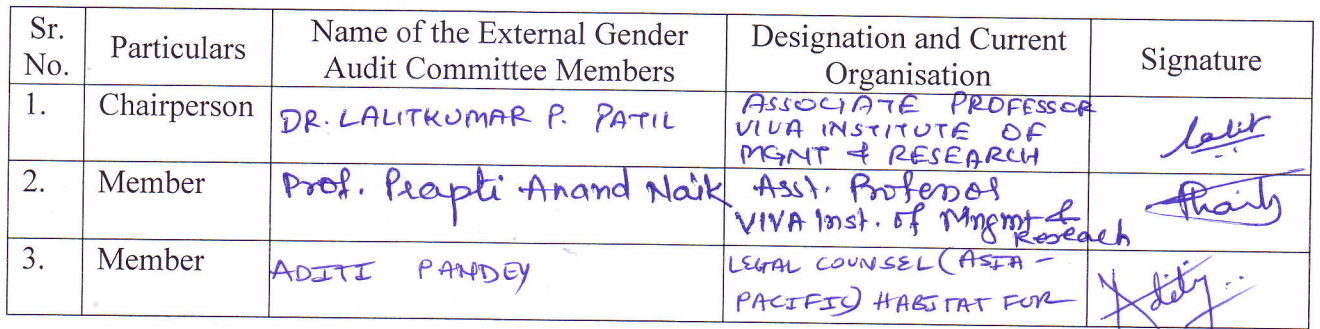 Sr. No. Particulars Name of the External Gender Audit Committee Members Designation and Current Organisation Signature
1. Chairperson DR. LALITKUMAR P. PATIL ASSOCIATE PROFESSOR
VIVA INSTITUTE OF
MGNT & RESEARCH
Lalit
2. Member Prof. Prapti Anand Naik Asst. Professor
VIVA Inst. of Mngmt &
Reseach
3. Member ADITI PANDEY LEGAL COUNSEL (ASIA -
PACIFIC) HABITAT FOR
Aditi